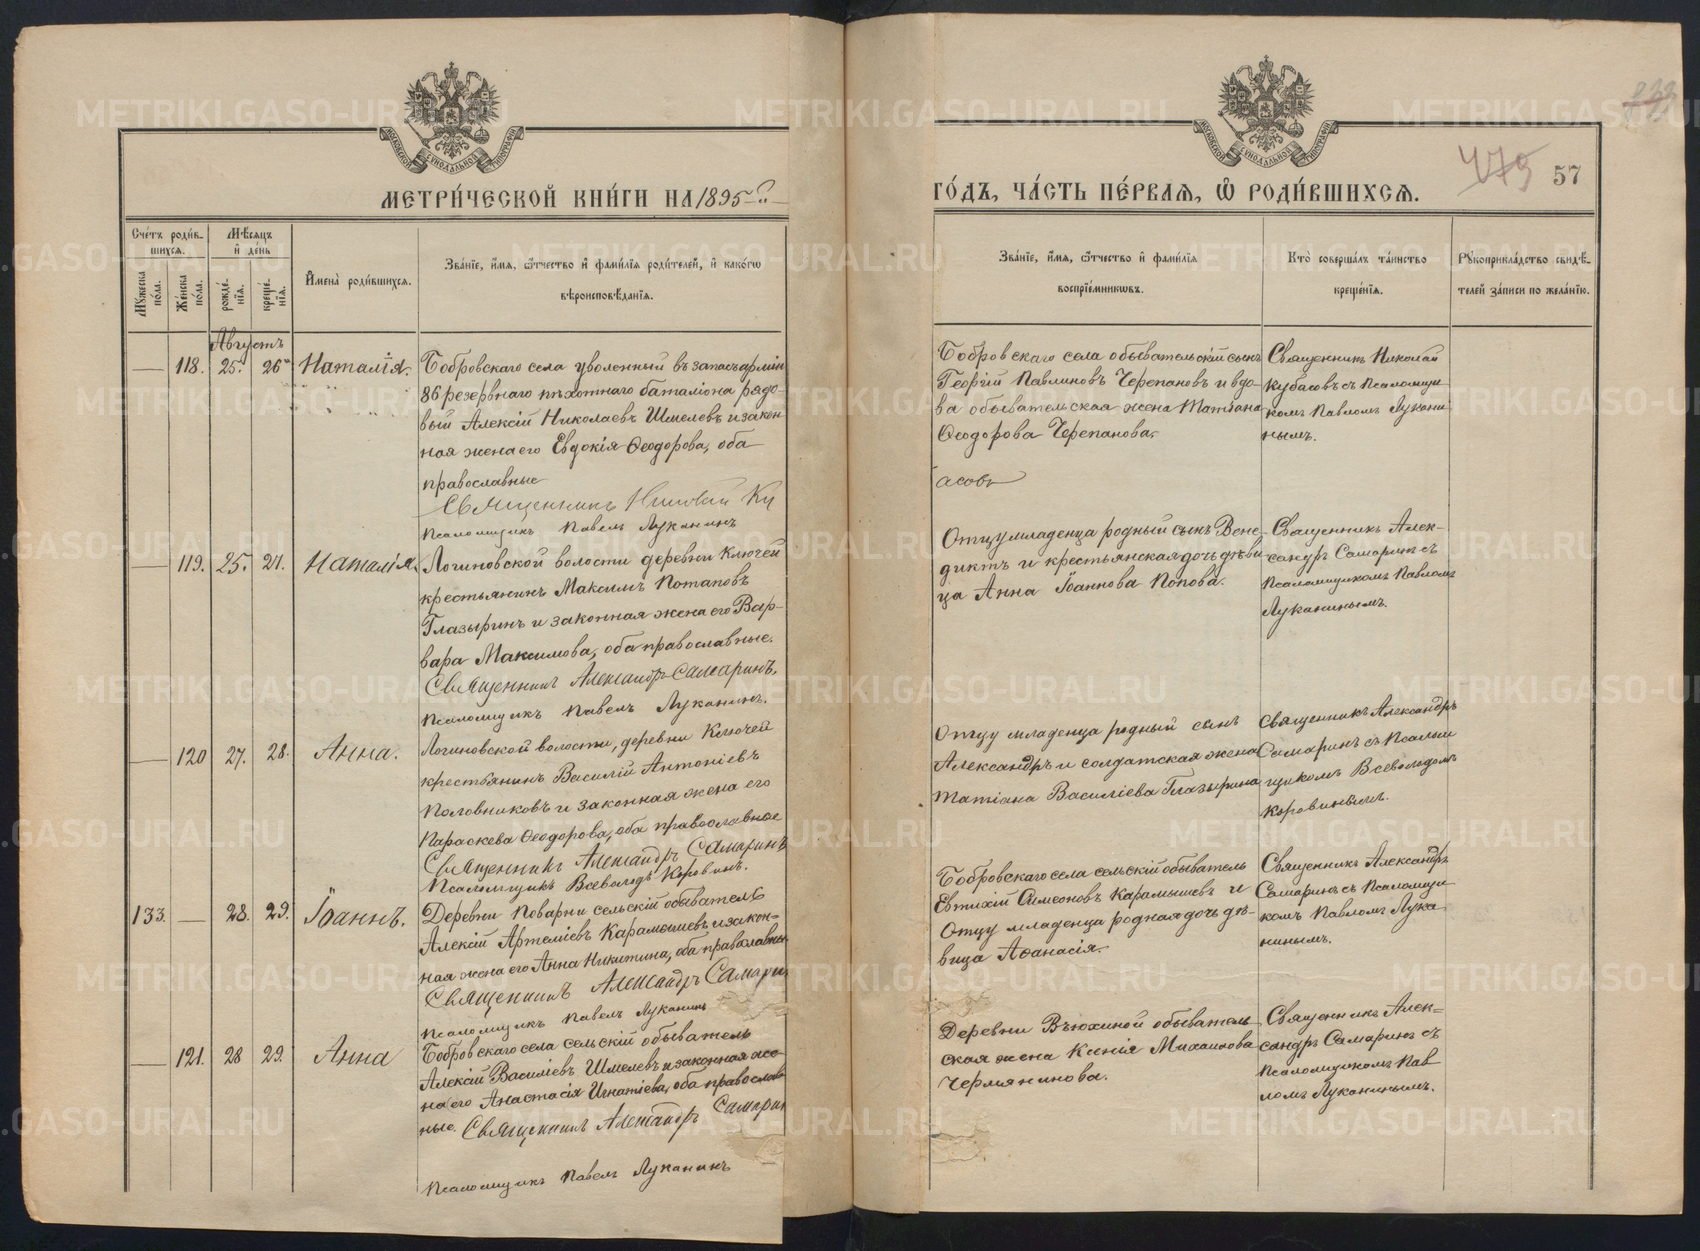 МЕТРИ́ЧЕСКОЙ КНИ́ГИ НА 1895
ГО́ДЪ, ЧА́СТЬ ПЕ́РВАЯ, Ѿ РОДИ́ВШИХСЯ.
57
Сче́тъ роди́в-
шихся.
Мѣ́сяцъ
и҆ де́нь
Мꙋ́жеска
по́ла.
Же́нска
по́ла.
рожде́-
нїя.
креще́-
нїя.
И҆мена̀ роди́вшихся.
Зва́нїе, и҆́мя, ѻ҆́тчество и҆ фами́лїя роди́телей, и҆ како́гѡ
вѣроисповѣ́данїя.
Зва́нїе, и҆́мя, ѻ҆́тчество и҆ фами́лїя
воспрїе́мникѡвъ.
Кто̀ соверша́лъ та́инство
креще́нїя.
Рꙋкоприкла́дство свидѣ́-
телей за́писи по жела́нїю.
Августъ
118. 25. 26 Наталія.
Бобровскаго села уволенный въ запасъ арміи
86 резервнаго пѣхотнаго баталіона рядо-
вый Алексій Николаевъ Шмелевъ и закон
ная жена его Евдокія Ѳеодорова, оба
православные
Священникъ Николай Ку
Псаломщикъ Павелъ Луканинъ
Бобровскаго села обывательскій сынъ
Георгій Павлиновъ Черепановъ и вдо-
ва обывательская жена Татіана
Ѳеодорова Черепанова.
асовъ
Священникъ Николай
Кубасовъ съ Псаломщи
комъ Павломъ Лукани
нымъ.
119. 25. 27. Наталія
Логиновской волости деревни Ключей
крестьянинъ Максимъ Потаповъ
Глазыринъ и законная жена его Вар-
вара Максимова, оба православные.
Священникъ Александръ Самаринъ.
Псаломщикъ Павелъ Луканинъ.
Отцу младенца родный сынъ Вене-
диктъ и крестьянская дочь дѣви
ца Анна Іоаннова Попова.
Священникъ Алек-
сандръ Самаринъ съ
Псаломщикомъ Павломъ
Луканинымъ.
120 27. 28. Анна.
Логиновской волости, деревни Ключей
крестьянинъ Василій Антоніевъ
Половниковъ и законная жена его
Параскева Ѳеодорова, оба православные
Священникъ Александръ Самаринъ
Псаломщикъ Всеволодъ Коровинъ.
Отцу младенца родный сынъ
Александръ и солдатская жена
Татіана Василіева Глазырина
Священникъ Александръ
Самаринъ съ Псалом
щикомъ Всеволодомъ
Коровинымъ.
133. 28. 29. Іоаннъ.
Деревни Поварни сельскій обыватель
Алексій Артеміевъ Карамышевъ и закон-
ная жена его Анна Никитина, оба православны
Священникъ Александръ Самари
Псаломщикъ Павелъ Луканинъ
Бобровскаго села сельскій обыватель
Евтихій Симеоновъ Карамышевъ и
Отцу младенца родная дочь дѣ-
вица Аѳанасія.
Священникъ Александръ
Самаринъ съ Псаломщи
комъ Павломъ Лука
нинымъ.
121. 28 29. Анна
Бобровскаго села сельскій обыватель
Алексій Василіевъ Шмелевъ и законная же-
на его Анастасія Игнатіева, оба православ
ные. Священникъ Александръ Самарин
Псаломщикъ Павелъ Луканинъ
Деревни Вьюхиной обыватель-
ская жена Ксенія Михаилова
Чермянинова.
Священникъ Алек-
сандръ Самаринъ съ
Псаломщикомъ Пав
ломъ Луканинымъ.
METRIKI.GASO-URAL.RU